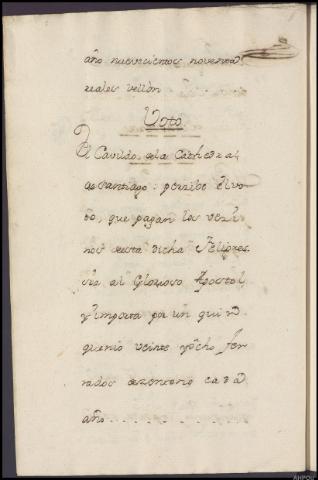 año nuevecientos noventa
reales vellon
Voto
El Cavildo de la Cathedral
de Santiago: percibe el vo-
to, que pagan los vezi-
nos de esta dicha Feligre-
sia al Glorioso Apostol,
y ymporta por un quin-
quenio veinte y ocho fer-
rados de zenteno cada
año
AHPOU